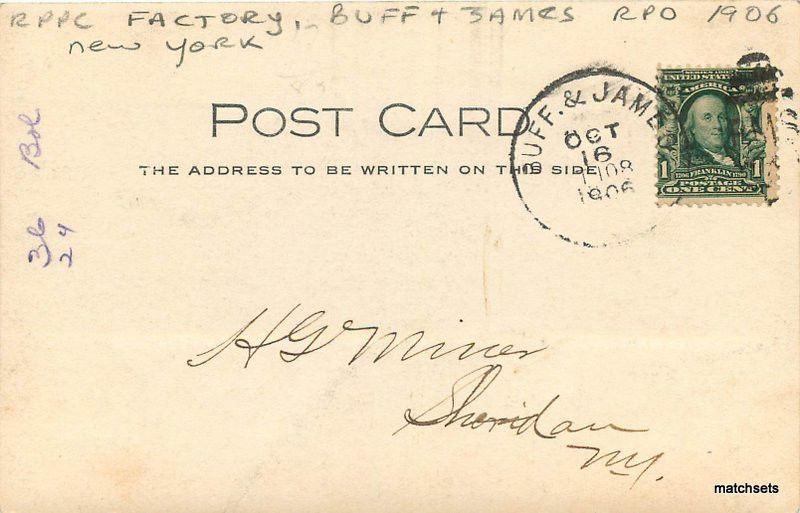 RPPC FACTORY, BUFF & JAMES RPO 1906
new york
POST CARD
THE ADDRESS TO BE WRITTEN ON THIS SIDE
BUFF. & JAME
OCT
16
1906
UNITED STATES
AMERICA
1706 FRANKLIN 1790
1 POSTAGE 1
ONE CENT
Bob
36
24
H G Miner
Sheridan
NY.
matchsets